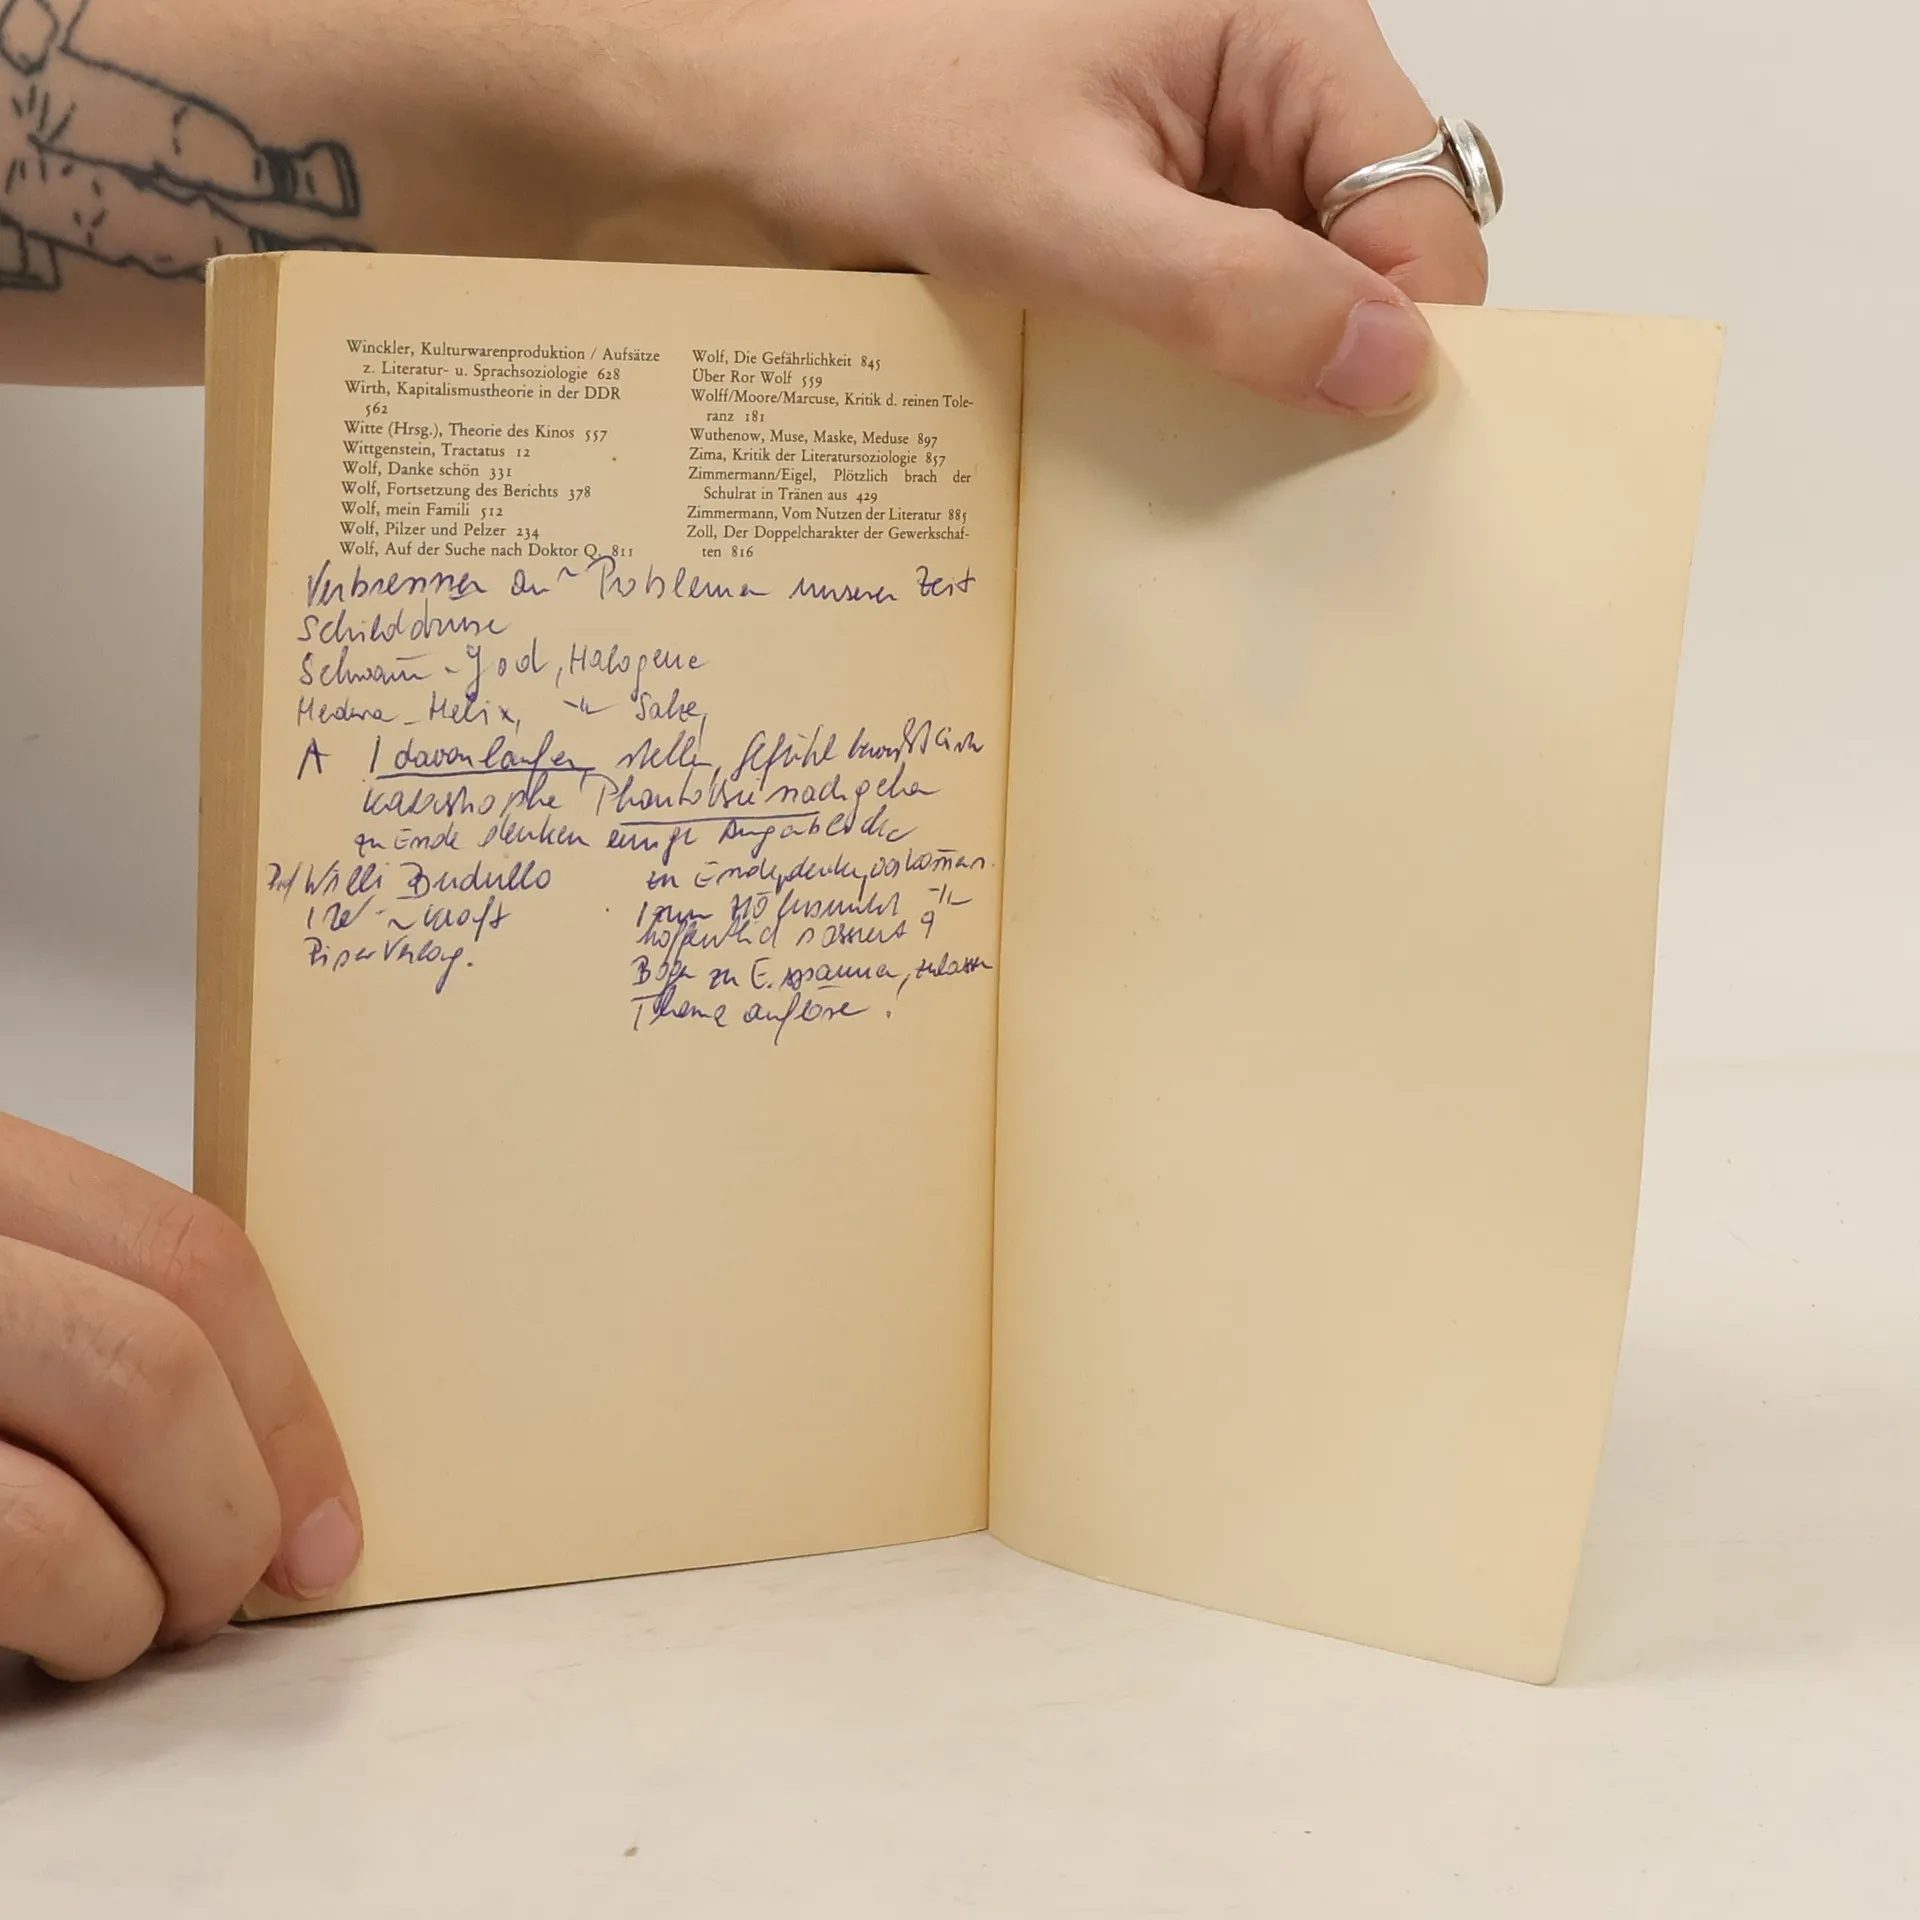 Winckler, Kulturwarenproduktion / Aufsätze
z. Literatur- u. Sprachsoziologie 628
Wirth, Kapitalismustheorie in der DDR
562
Witte (Hrsg.), Theorie des Kinos 557
Wittgenstein, Tractatus 12
Wolf, Danke schön 331
Wolf, Fortsetzung des Berichts 378
Wolf, mein Famili 512
Wolf, Pilzer und Pelzer 234
Wolf, Auf der Suche nach Doktor Q. 811
Wolf, Die Gefährlichkeit 845
Über Ror Wolf 559
Wolff/Moore/Marcuse, Kritik d. reinen Tole-
ranz 181
Wuthenow, Muse, Maske, Meduse 897
Zima, Kritik der Literatursoziologie 857
Zimmermann/Eigel, Plötzlich brach der
Schulrat in Tränen aus 429
Zimmermann, Vom Nutzen der Literatur 885
Zoll, Der Doppelcharakter der Gewerkschaf-
ten 816
Verbrennen an Problemen unserer Zeit
Schilddrüse
Jod, Halogene
Helix, Salze,
A 1 davonlaufen, stellen, Gefühl
Katastrophe Phantasie nachgehen
zu Ende denken einige
Willi
Kraft
Piper Verlag.
zu Ende denken,
hoffentlich passiert
zu E. spannen, zulassen
Thema auflöse!